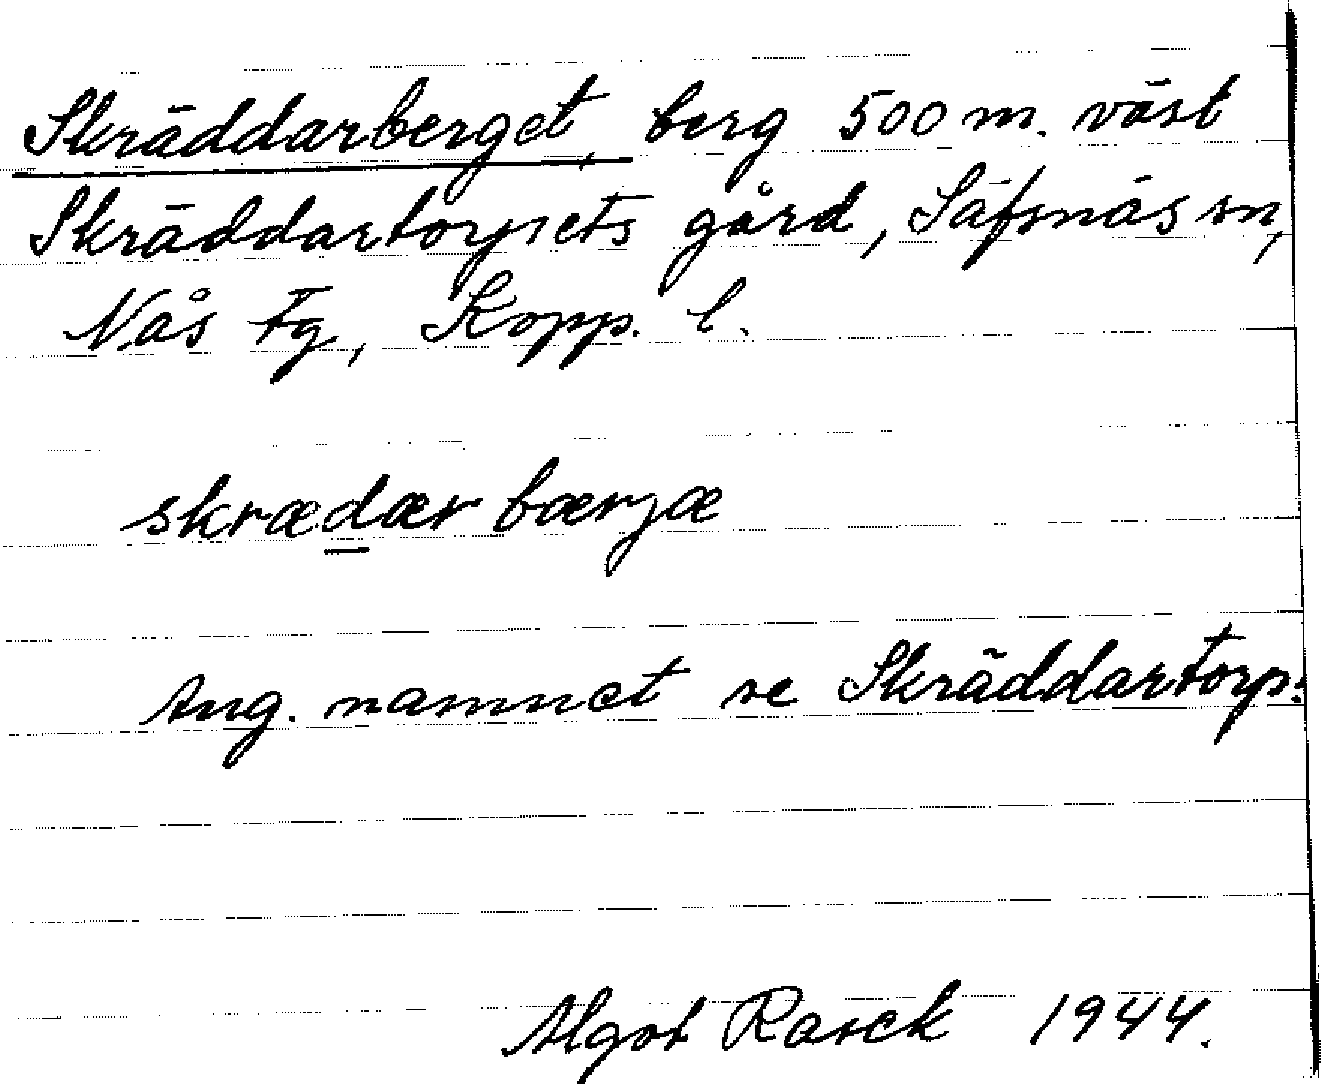 Skräddarberget, berg 500 m. väst
Skräddartorpets gård, Säfsnäs sn,
Nås tg, Kopp. l.
skrædær bærjæ
Ang. namnet se Skräddartorp.
Algot Rasck 1944.